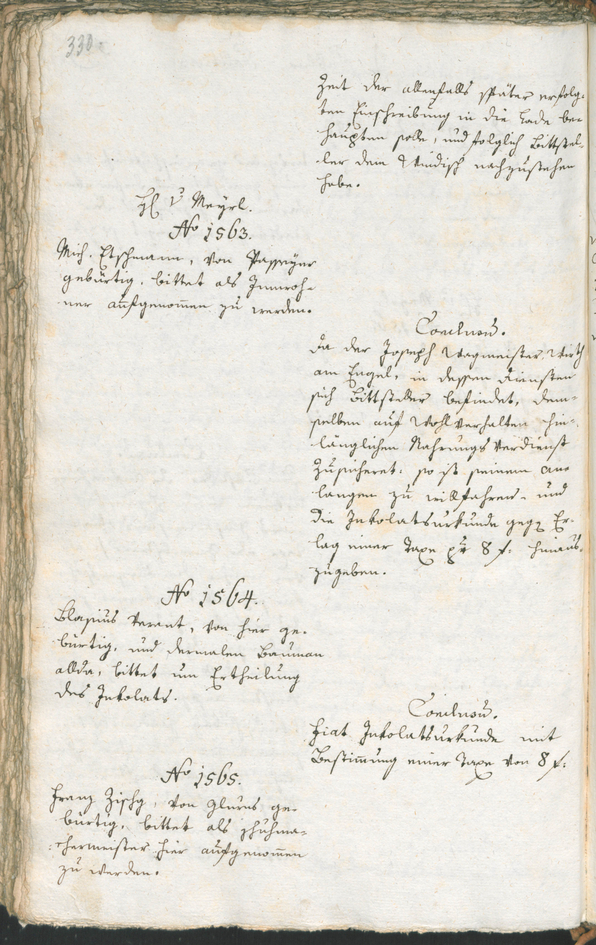 330.
Zeit der allenfalls später erfolg-
ten Einschreibung in die Lade be-
haupten solle, und folglich Bittstel-
ler dem Windisch nachzustehen
habe.
H v Mayrl.
No 1563.
Mich. Etschmann, von Passeyer
gebürtig, bittet als Innwoh-
ner aufgenommen zu werden.
Conclusū.
Da der Joseph Wegmeister, Wirth
am Engel, in dessen Diensten
sich Bittsteller befindet, dem-
selben auf Wohlverhalten hin-
länglichen Nahrungs Verdienst
zusicheret: so ist seinem An-
langen zu willfahren, und
die Inkolatsurkunde gegen Er-
lag einer Taxe pr 8 f: hinaus-
zugeben.
No 1564.
Blasius Verant, von hier ge-
bürtig, und dermalen Bauman
allda, bittet um Ertheilung
des Inkolats.
Conclusū.
Fiat Inkolatsurkunde mit
Bestimmung einer Taxe von 8 f:
No 1565.
Franz Zischg, von Glurns ge-
bürtig, bittet als Schuhma-
chermeister hier aufgenommen
zu werden.